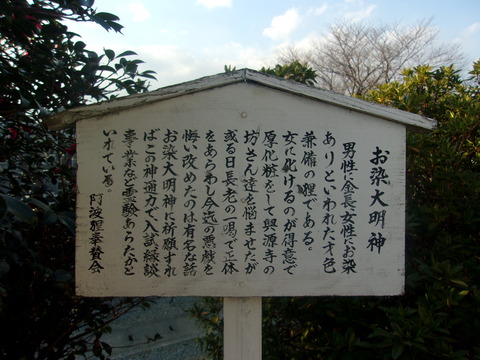 お染大明神
男性に金長、女性にお染
ありといわれた才色
兼備の狸である。
女に化けるのが得意で
厚化粧をして興源寺の
坊さん達を悩ませたが
或る日長老の一喝で正体
をあらわし今迄の悪戯を
悔い改めたのは有名な話
お染大明神に祈願すれ
ばこの神通力で入試、縁談
事業など霊験あらたかと
いわれている。
阿波狸奉賛会